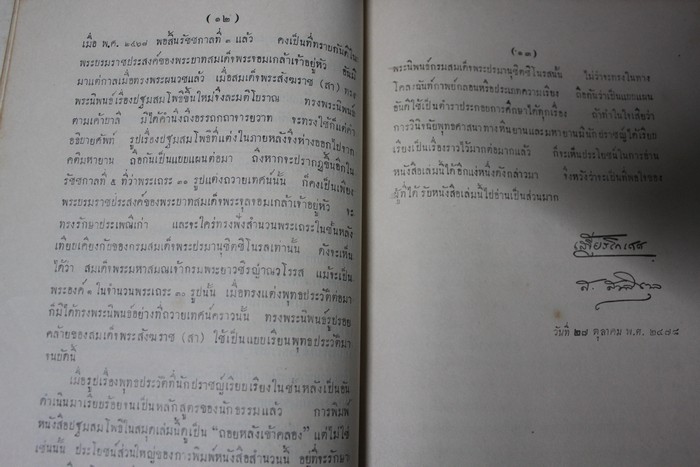 (๑๒)
เมื่อ พ.ศ. ๒๔๖๗ พอสิ้นรัชชกาลที่ ๓ แล้ว คงเป็นที่ทราบกันดีใน
พระบรมราชประสงค์ของพระบาทสมเด็จพระจอมเกล้าเจ้าอยู่หัว อันมี
มาแต่กาลเมื่อทรงพระผนวชแล้ว เมื่อสมเด็จพระสังฆราช (สา) ทรง
พระนิพนธ์เรื่องปฐมสมโพธิขึ้นใหม่จึงละมติโบราณ ทรงพระนิพนธ์
ตามเค้าบาลี มิได้คำนึงถึงอรรถกถาจารยวาท จะทรงใช้ก็แต่คำ
อธิบายศัพท์ รูปเรื่องปฐมสมโพธิที่แต่งในภายหลังจึงห่างออกไปจาก
คติมหายาน ถือกันเป็นแบบแผนต่อมา ถึงหากจะปรากฏขึ้นอีกใน
รัชชกาลที่ ๕ ที่ว่าพระเถระ ๓๐ รูปแต่งถวายเทศน์นั้น ก็คงเป็นเพียง
พระบรมราชประสงค์ของพระบาทสมเด็จพระจุลจอมเกล้าเจ้าอยู่หัว จะ
ทรงรักษาประเพณีเก่า และจะใคร่ทรงฟังสำนวนพระเถระในชั้นหลัง
เทียบเคียงกับของกรมสมเด็จพระปรมานุชิตชิโนรสเท่านั้น ดังจะเห็น
ได้ว่า สมเด็จพระมหาสมณเจ้ากรมพระยาวชิรญาณวโรรส แม้จะเป็น
พระองค์ ๑ ในจำนวนพระเถระ ๓๐ รูปนั้น เมื่อทรงแต่งพุทธประวัติต่อมา
ก็มิได้ทรงพระนิพนธ์อย่างที่ถวายเทศน์คราวนั้น ทรงพระนิพนธ์รูปรอย
คล้ายของสมเด็จพระสังฆราช (สา) ใช้เป็นแบบเรียนพุทธประวัติมา
จนบัดนี้
เมื่อรูปเรื่องพุทธประวัติที่นักปราชญ์เรียบเรียงในชั้นหลังเป็นอัน
ดำเนินมาเรียบร้อยจนเป็นหลักสูตรของนักธรรมแล้ว การพิมพ์
หนังสือปฐมสมโพธิในสมุดเล่มนี้ดูเป็น “ถอยหลังเข้าคลอง” แต่ไม่ใช่
เช่นนั้น ประโยชน์ส่วนใหญ่ของการพิมพ์หนังสือสำนวนนี้ อยู่ที่จะรักษา
(๑๓)
พระนิพนธ์กรมสมเด็จพระปรมานุชิตชิโนรสนั้น ไม่ว่าจะทรงในทาง
โคลงฉันท์กาพย์กลอนหรือประเภทความเรียง ถือกันว่าเป็นแบบแผน
อันดีใช้เป็นตำราประกอบการศึกษาได้ทุกเรื่อง ถ้าทำในใจเสียว่า
การวินิจฉัยพุทธศาสนาทางหินยานและมหายานมีนักปราชญ์ได้เรียบ
เรียงเป็นเรื่องราวไว้มากต่อมากแล้ว ก็จะเห็นประโยชน์ในการอ่าน
หนังสือเล่มนี้ได้อีกแง่หนึ่งดังกล่าวมา จึงหวังว่าจะเป็นที่พอใจของ
ผู้ที่ได้รับหนังสือเล่มนี้ไปอ่านเป็นส่วนมาก
วันที่ ๒๗ ตุลาคม พ.ศ. ๒๔๘๘